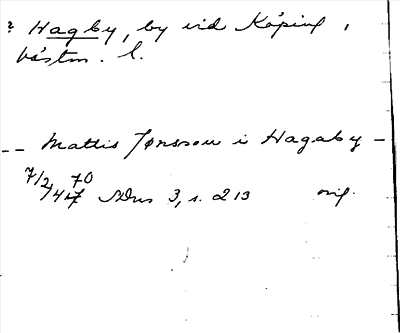 ? Hagby, by vid Köping,
Västm. l.
-- Mattis Jønsson i Hagaby -
7/2 1470 SDns 3, s. 213 orig.